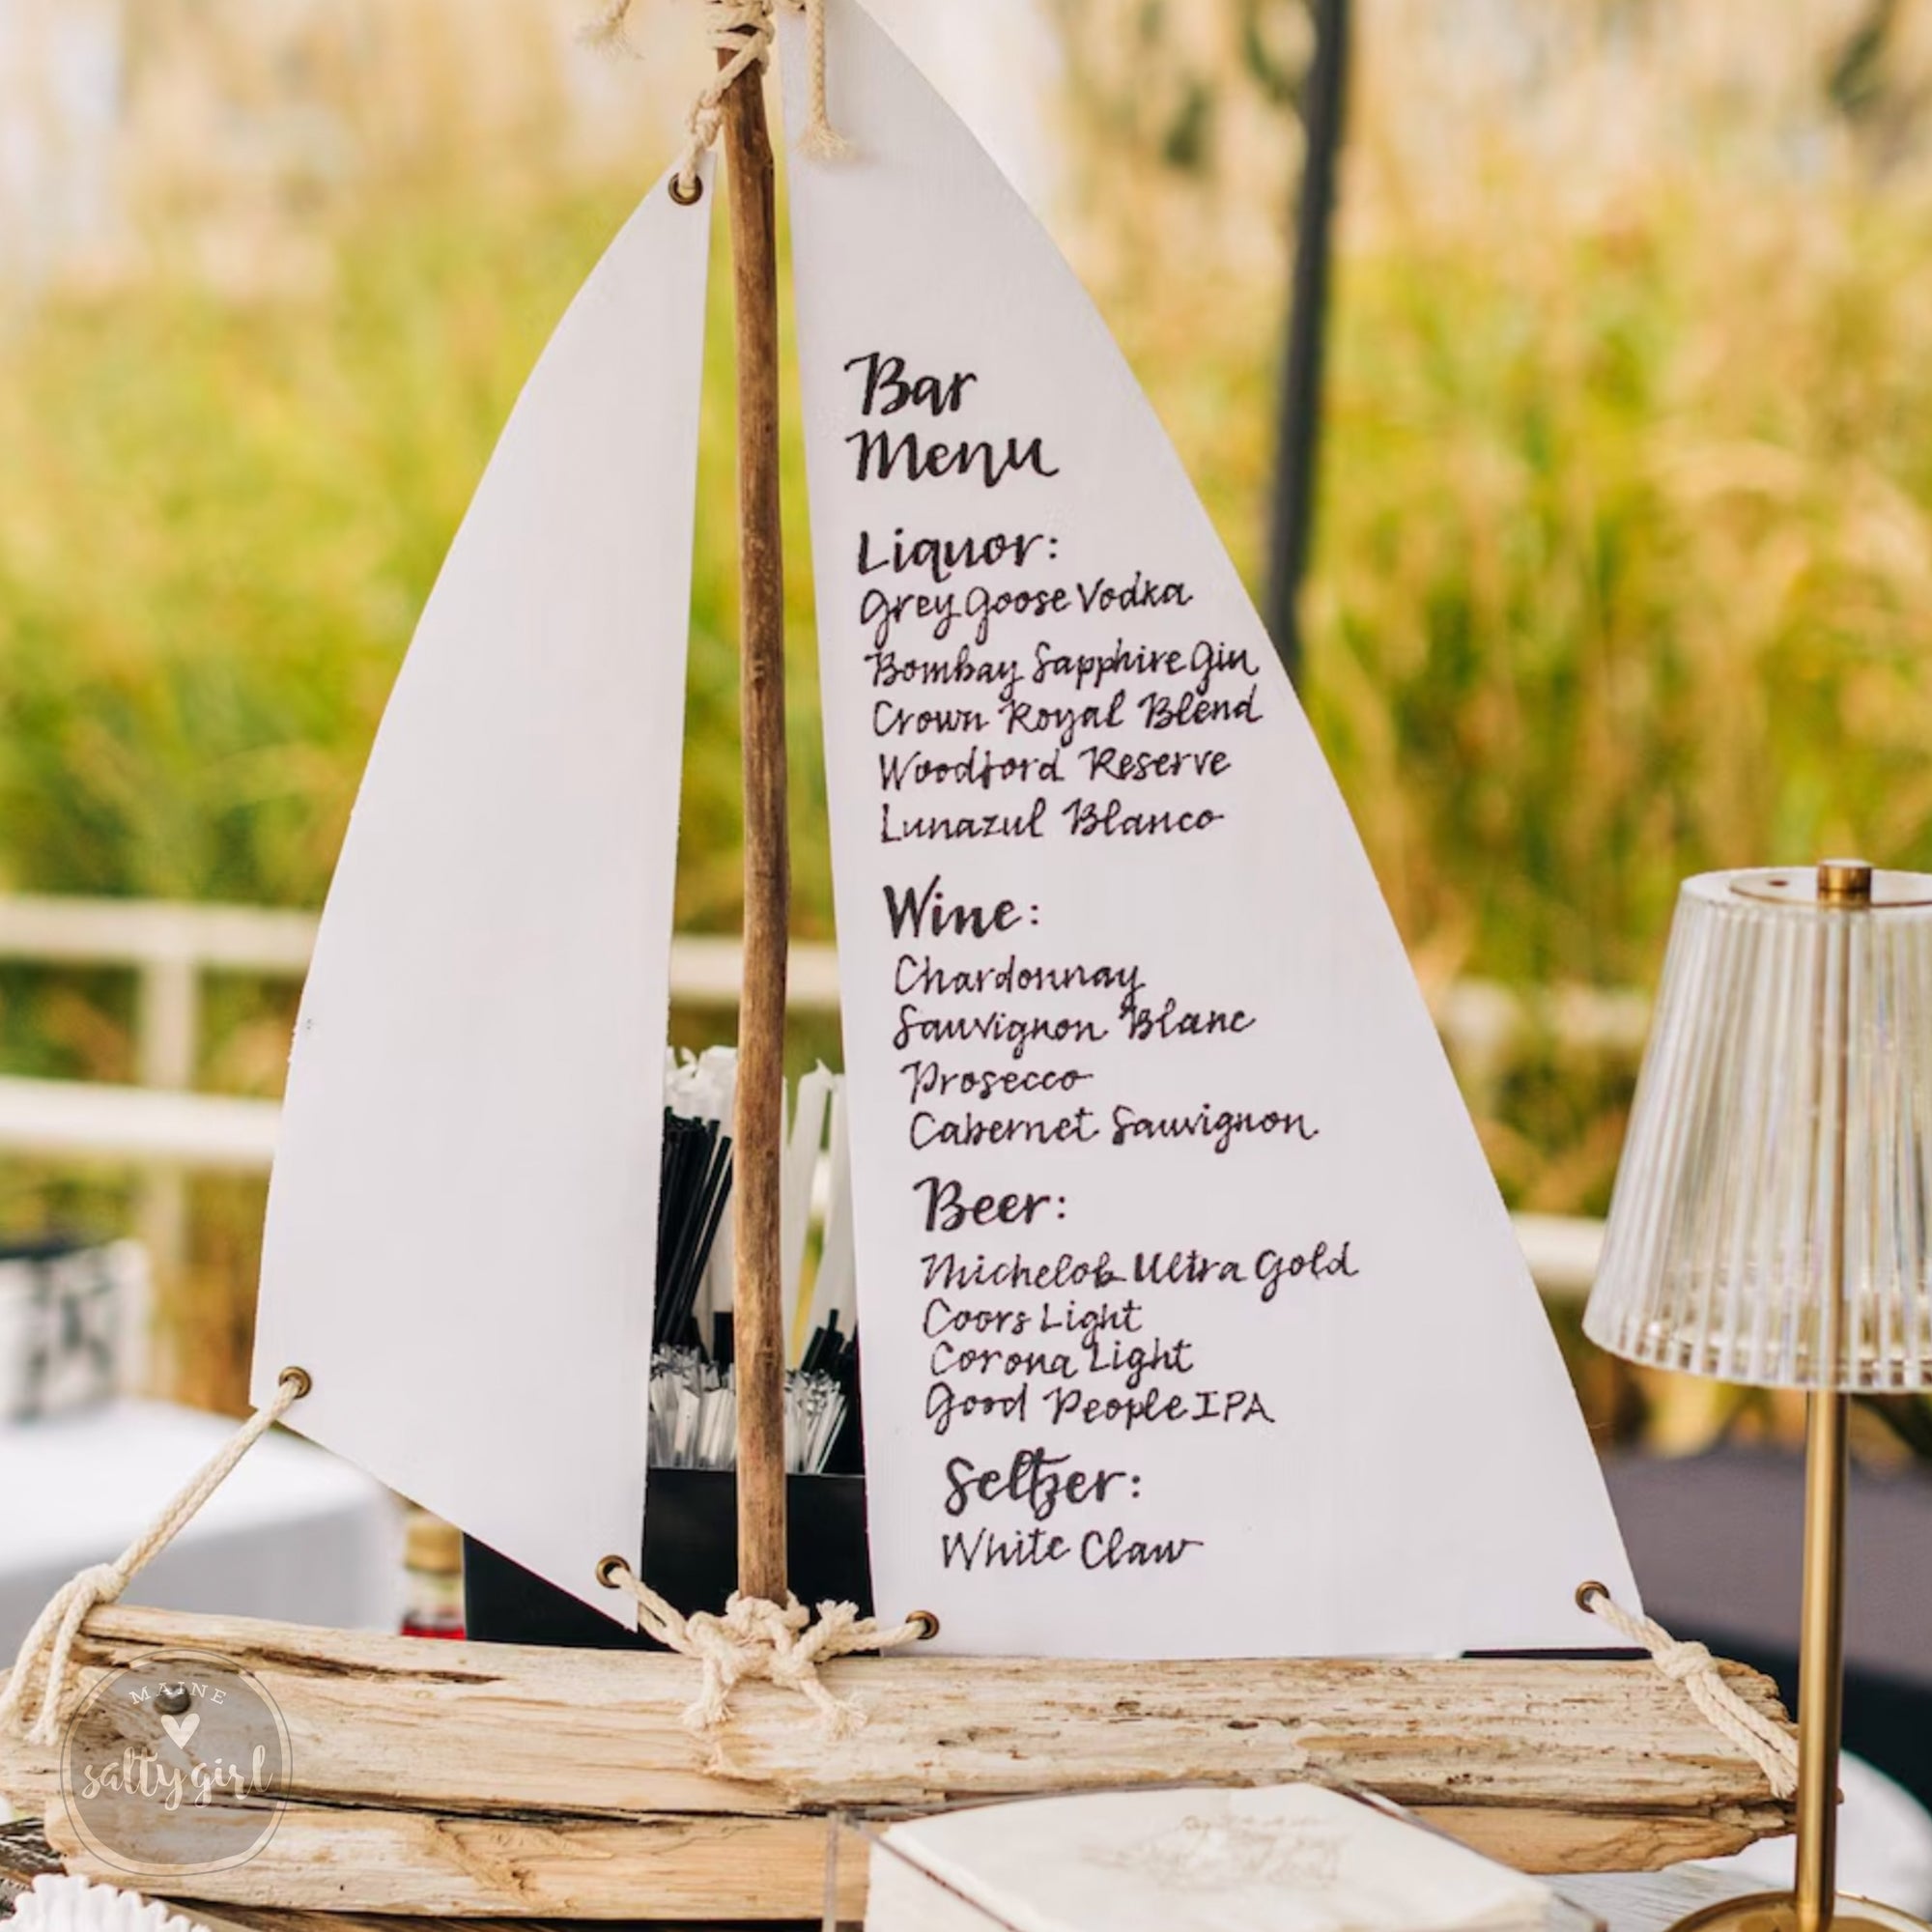 Bar
Menu
Liquor:
Grey Goose Vodka
Bombay Sapphire Gin
Crown Royal Blend
Woodford Reserve
Lunazul Blanco
Wine:
Chardonnay
Sauvignon Blanc
Prosecco
Cabernet Sauvignon
Beer:
Michelob Ultra Gold
Coors Light
Corona Light
Good People IPA
Seltzer:
White Claw
MAINE
salty girl